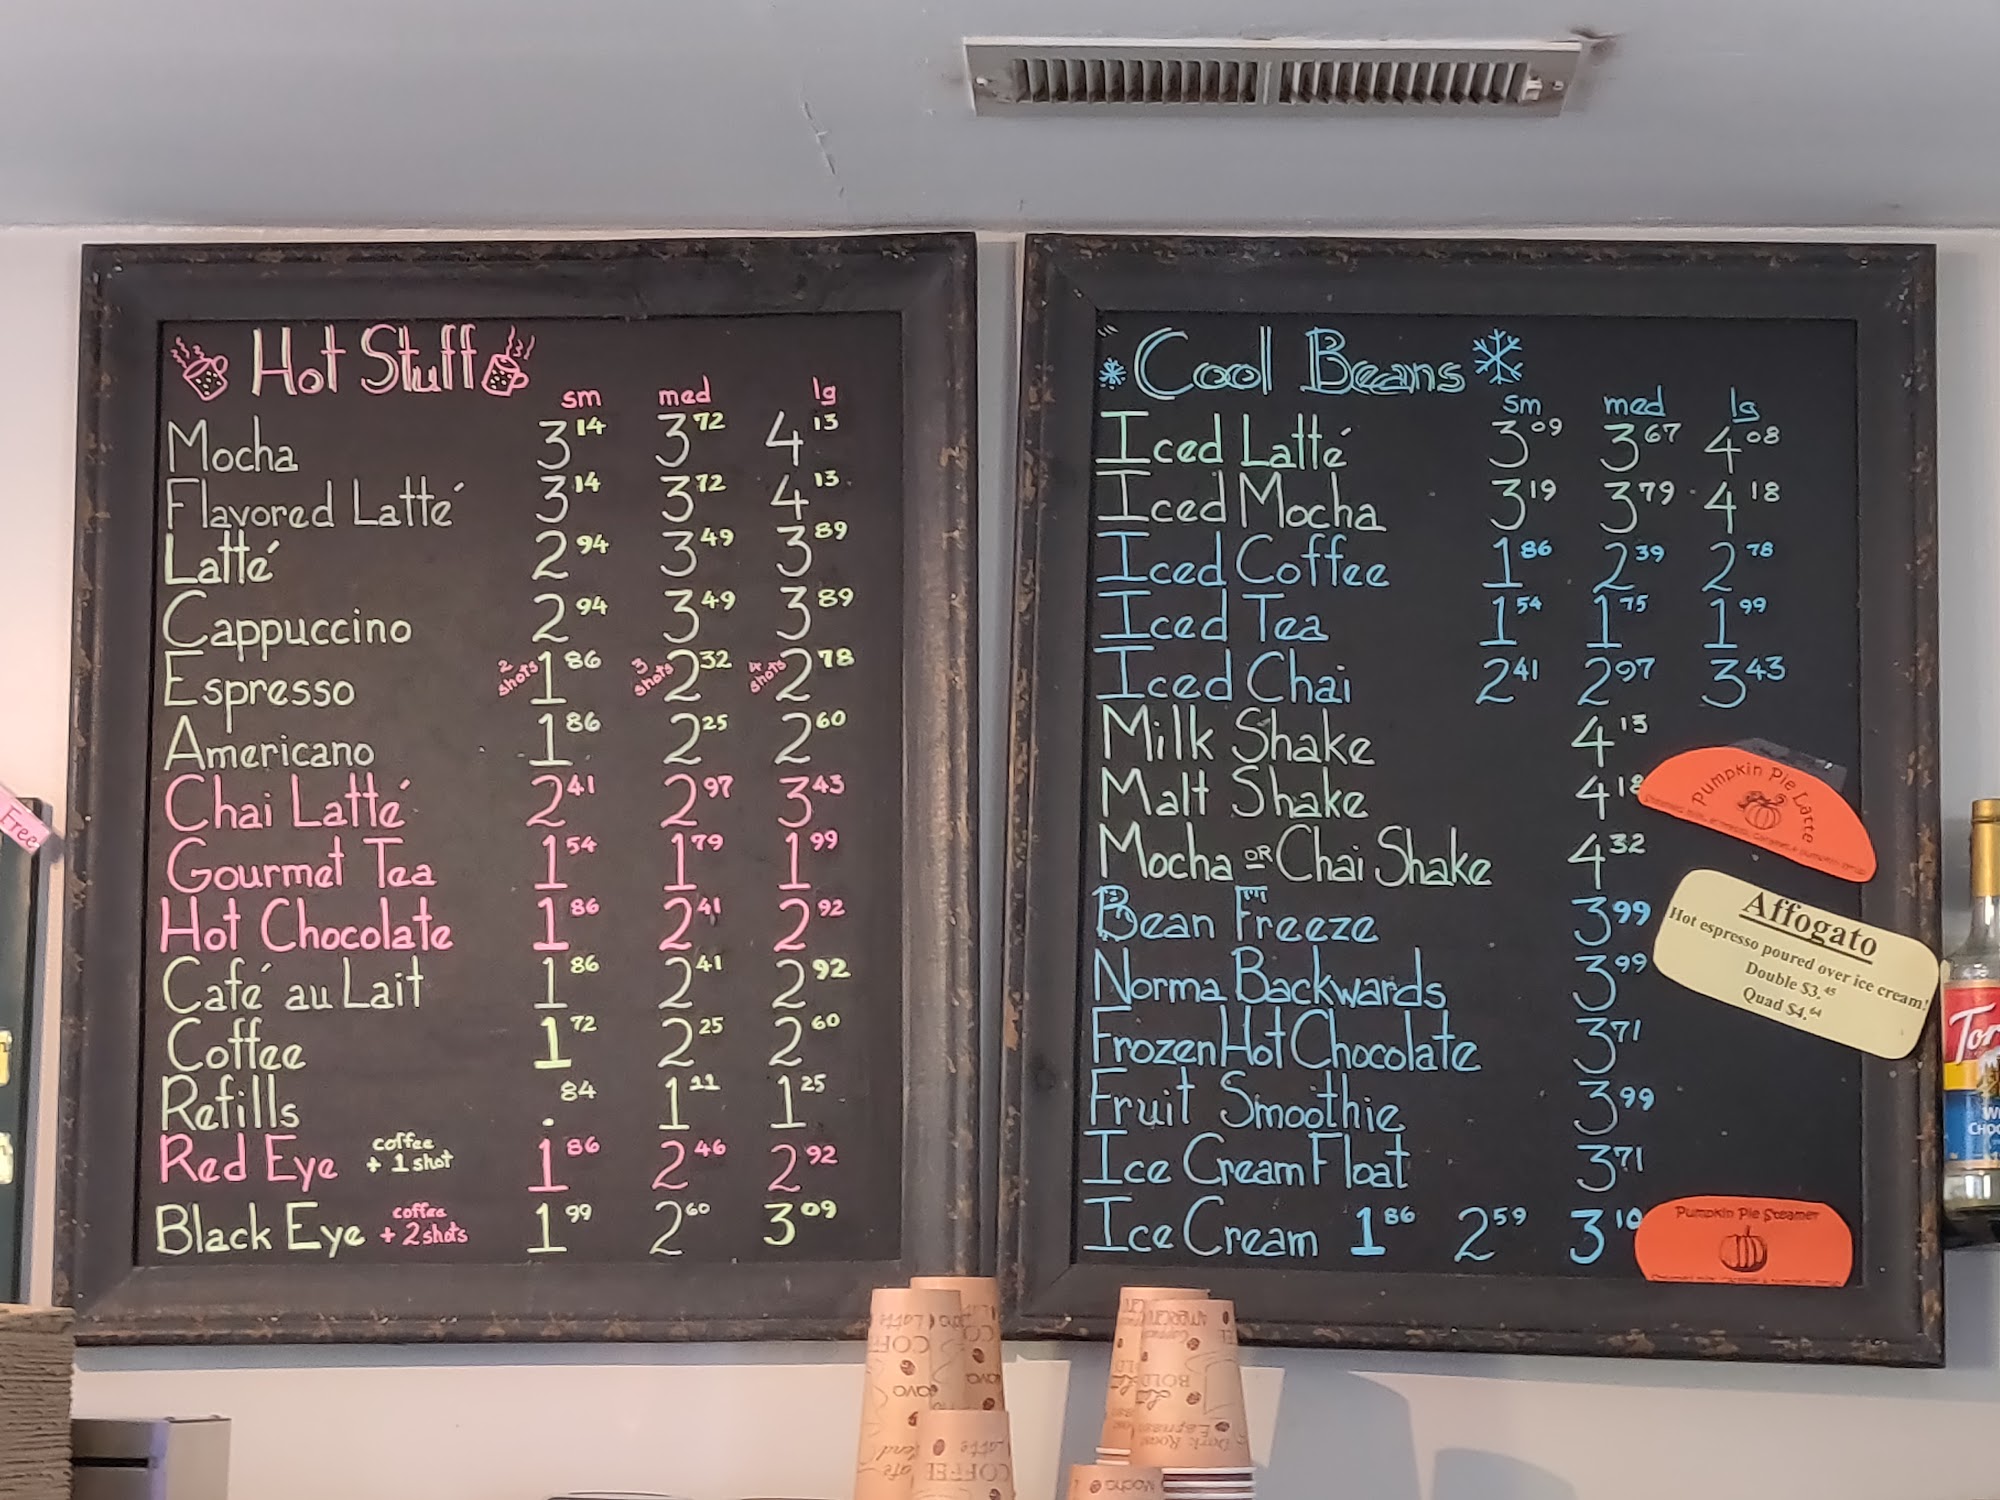 Hot Stuff
sm med lg
Mocha 3 14 3 72 4 13
Flavored Latté 3 14 3 72 4 13
Latté 2 94 3 49 3 89
Cappuccino 2 94 3 49 3 89
Espresso 2 shots 1 86 3 shots 2 32 4 shots 2 78
Americano 1 86 2 25 2 60
Chai Latté 2 41 2 97 3 43
Gourmet Tea 1 54 1 79 1 99
Hot Chocolate 1 86 2 41 2 92
Café au Lait 1 86 2 41 2 92
Coffee 1 72 2 25 2 60
Refills . 84 1 11 1 25
Red Eye coffee + 1 shot 1 86 2 46 2 92
Black Eye coffee + 2 shots 1 99 2 60 3 09
Cool Beans
sm med lg
Iced Latté 3 09 3 67 4 08
Iced Mocha 3 19 3 79 4 18
Iced Coffee 1 86 2 39 2 78
Iced Tea 1 54 1 75 1 99
Iced Chai 2 41 2 97 3 43
Milk Shake 4 13
Malt Shake 4 18
Mocha OR Chai Shake 4 32
Bean Freeze 3 99
Norma Backwards 3 99
Frozen Hot Chocolate 3 71
Fruit Smoothie 3 99
Ice Cream Float 3 71
Ice Cream 1 86 2 59 3 10
Pumpkin Pie Latte
Affogato
Hot espresso poured over ice cream!
Double $3.45
Quad $4.64
Pumpkin Pie Steamer
Free
Tor
COFFEE
BOLD
Espresso
Dark Roast
Mocha